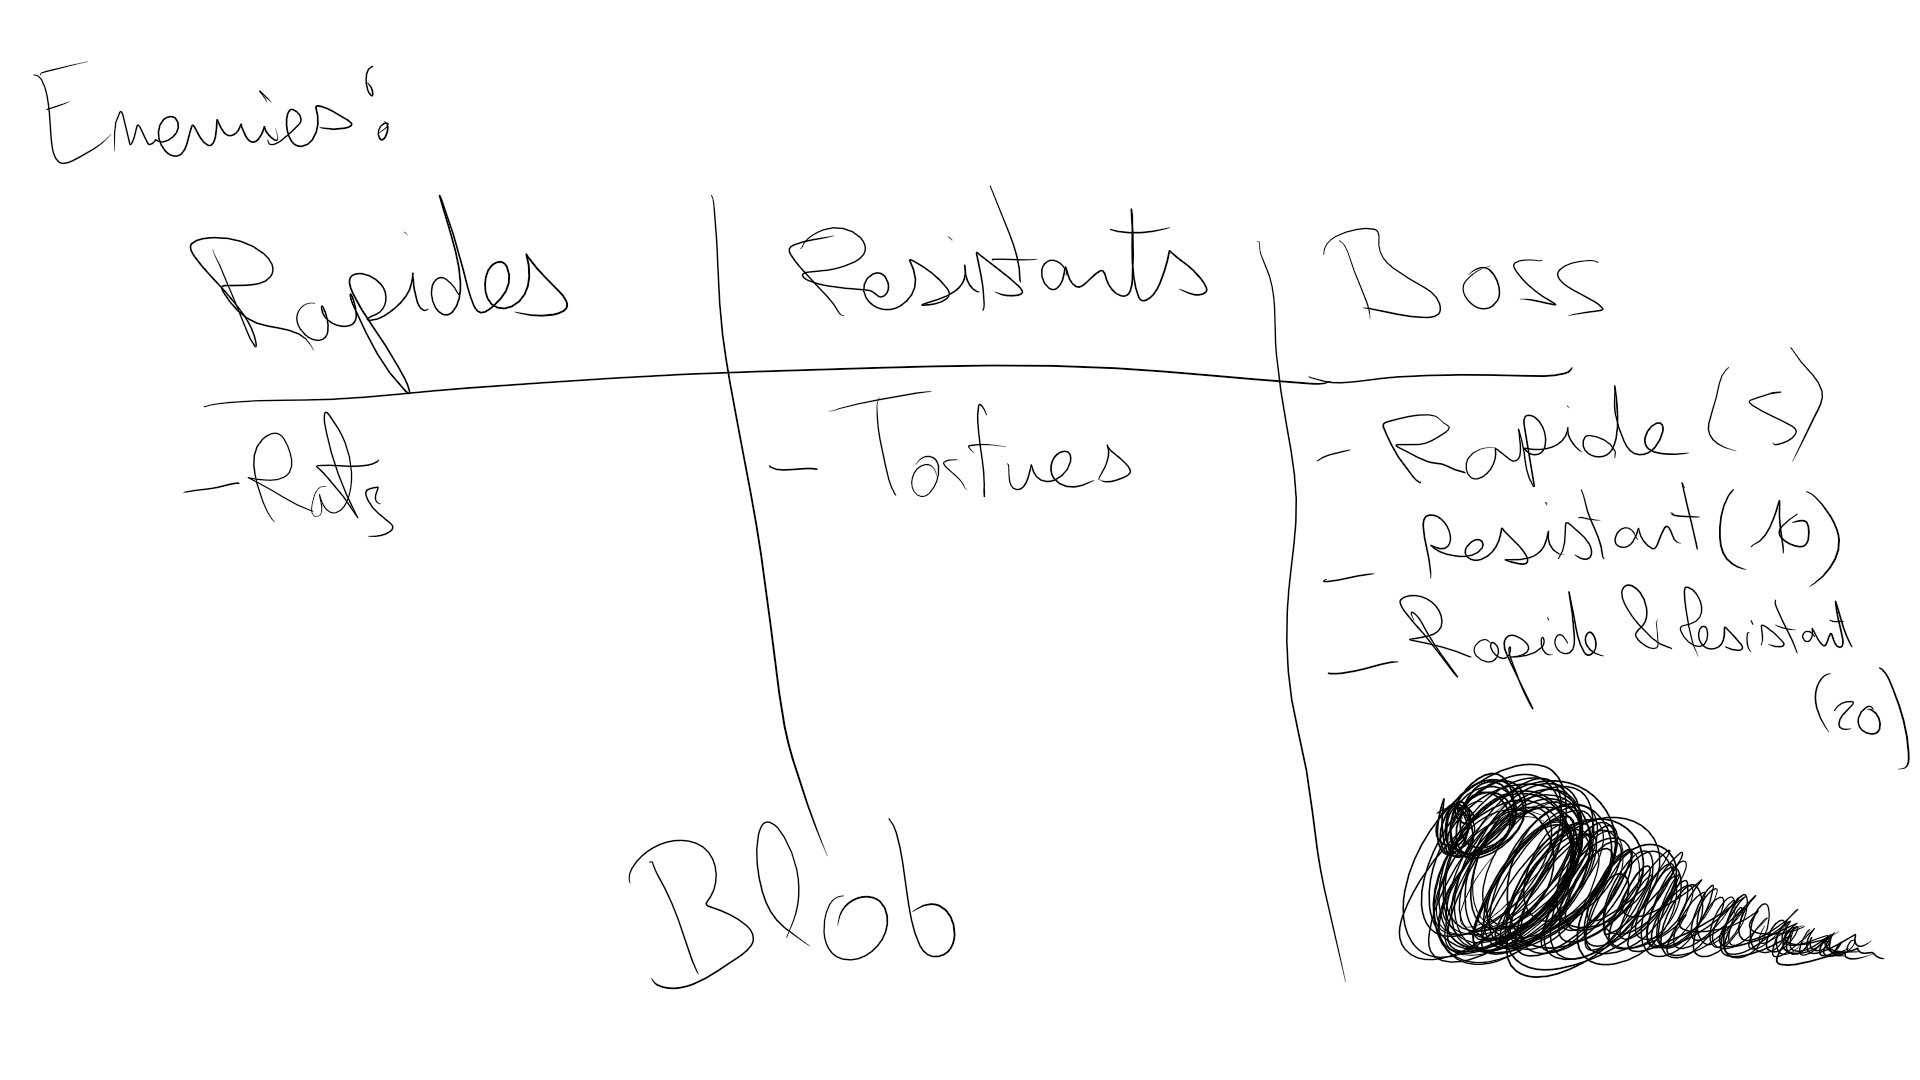 Enemies :
Rapides Resistants Boss
- Rats - Tortues - Rapide (5)
- Resistant (10)
- Rapide & Resistant
(20)
Blob